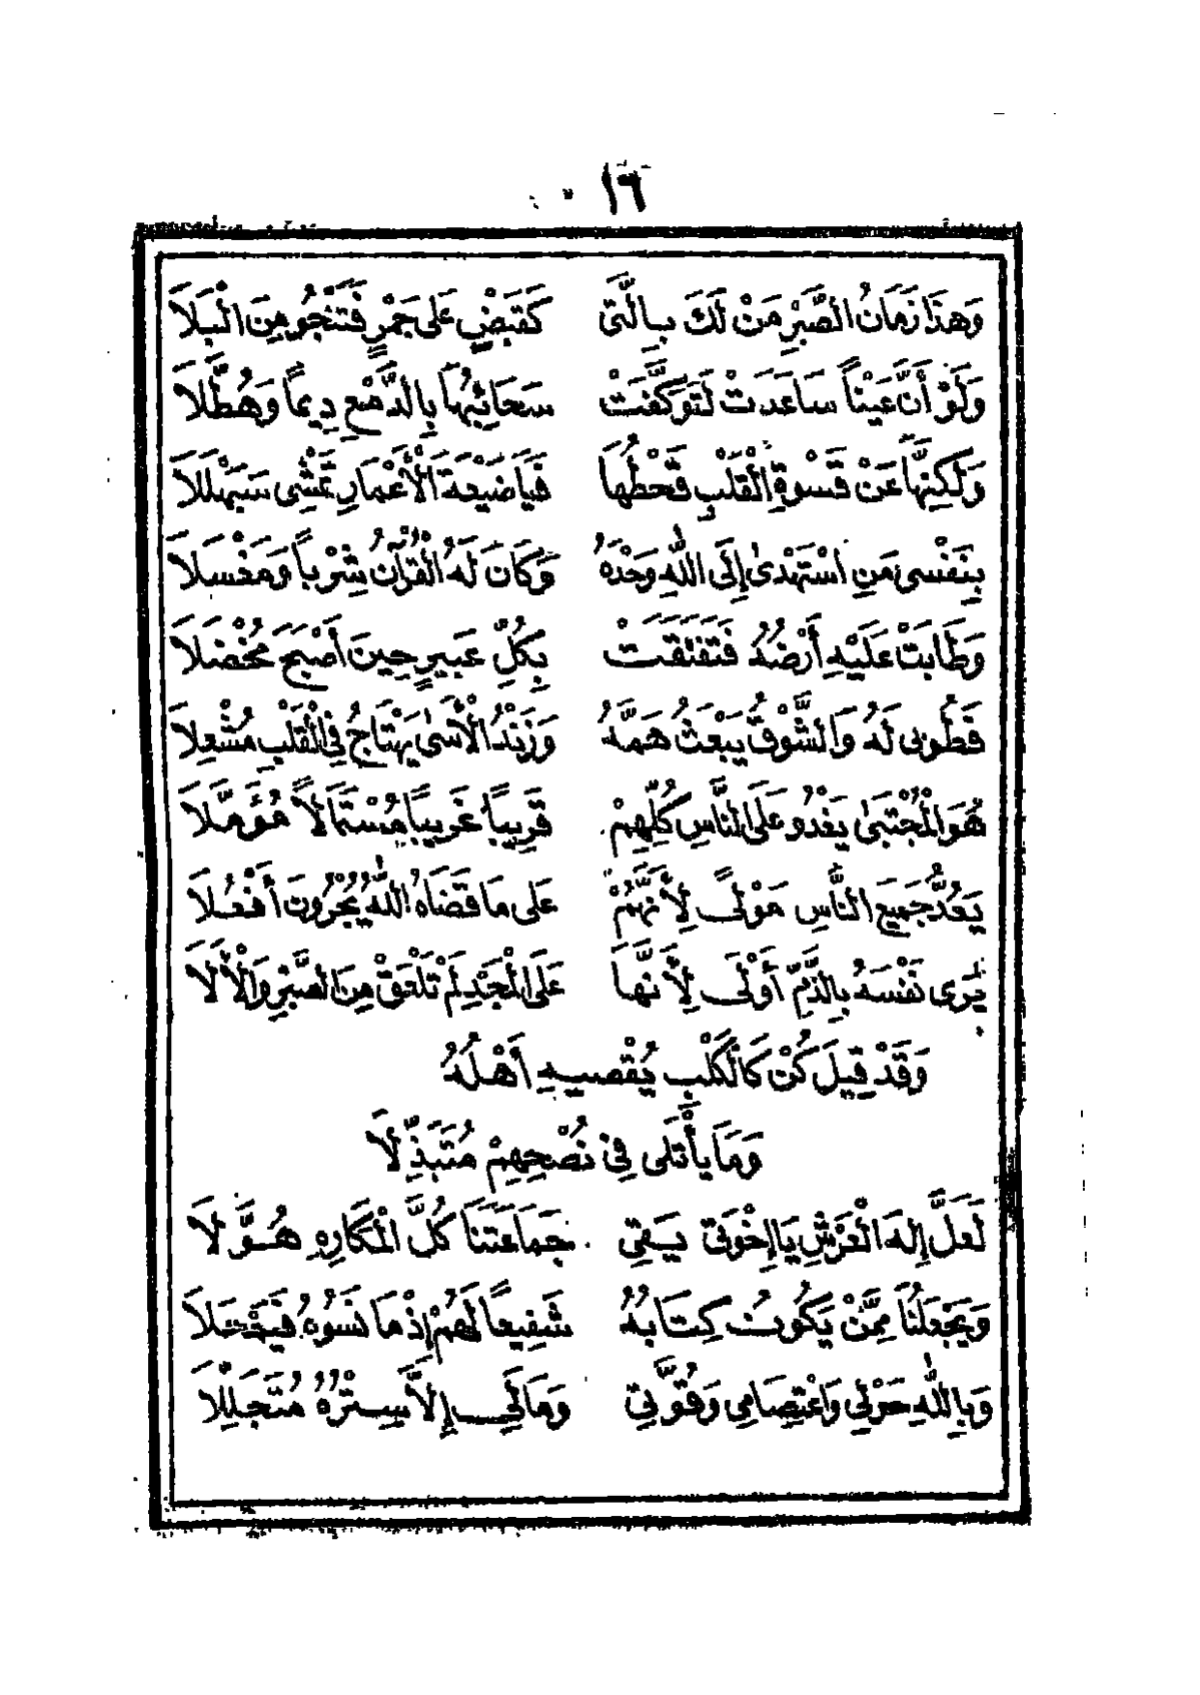 ١٦
وَهَذَا زَمَانُ الصَّبْرِ مَنْ لَكَ بِالَّتِى كَقَبْضٍ عَلَى جَمْرٍ فَتَنْجُو مِنَ الْبَلاَ
وَلَوْ أَنَّ عَيْناً سَاعَدَتْ لَتَوَكَّفَتْ سَحَائِبُهَا بِالدَّمْعِ دِيماً وَهُطَّلاَ
وَلَكِنَّهَا عَنْ قَسْوَةِ الْقَلْبِ قَحْطُهَا فَيَا ضَيْعَةَ الْأَعْمَارِ تَمْشِى سَبَهْلَلاَ
بِنَفْسِى مَنِ اسْتَهْدَىٰ إِلَى اللهِ وَحْدَهُ وَكَانَ لَهُ الْقُرْآنُ شِرْباً وَمَغْسَلاَ
وَطَابَتْ عَلَيْهِ أَرْضُهُ فَتَفَتَّقَتْ بِكُلِّ عَبِيرٍ حِينَ أَصْبَحَ مُخْضَلاَ
فَطُوبَى لَهُ وَالشَّوْقُ يَبْعَثُ هَمَّهُ وَزَنْدُ الْأَسَىٰ يَهْتَاجُ فِى الْقَلْبِ مُشْعِلاَ
هُوَ الْمُجْتَبَىٰ يَغْدُو عَلَى النَّاسِ كُلِّهِمْ قَرِيباً غَرِيباً مُسْتَمَالاً مُؤَمَّلاَ
يَعُدُّ جَمِيعَ النَّاسِ مَوْلًى لِأَنَّهُمْ عَلَى مَا قَضَاهُ اللهُ يُجْرُونَ أَفْعُلاَ
يَرَى نَفْسَهُ بِالذَّمِّ أَوْلَى لِأَنَّهَا عَلَى الْمَجْدِ لَمْ تَلْعَقْ مِنَ الصَّبْرِ وَالْأَلاَ
وَقَدْ قِيلَ كُنْ كَالْكَلْبِ يُقْصِيهِ أَهْلُهُ
وَمَا يَأْتَلِى فِى نُصْحِهِمْ مُتَبَذِّلاَ
لَعَلَّ إِلَهَ الْعَرْشِ يَا إِخْوَتِى يَقِى جَمَاعَتَنَا كُلَّ الْمَكَارِهِ هُوَّلاَ
وَيَجْعَلُنَا مِمَّنْ يَكُونُ كِتَابُهُ شَفِيعاً لَهُمْ إِذْ مَا نَسُوهُ فَيَمْحَلاَ
وَبِاللهِ حَوْلِى وَاعْتِصَامِى وَقُوَّتِى وَمَا لِىَ إِلاَّ سِتْرُهُ مُتَجَلِّلاَ